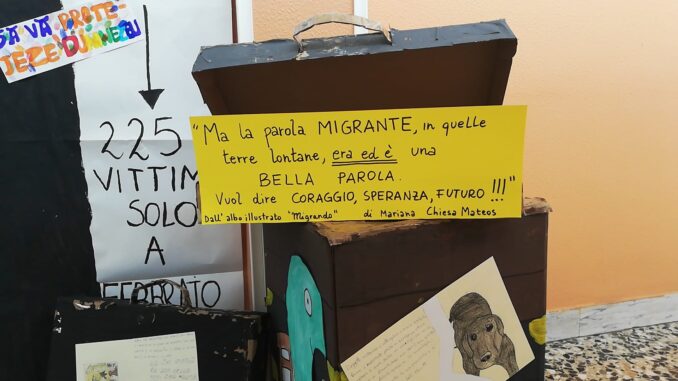 SĂ VĂ PROTE-
JEZE DUMNEZEU
225
VITTIM
SOLO
A
FEBBRAIO
"Ma la parola MIGRANTE, in quelle
terre lontane, era ed è una
BELLA PAROLA.
Vuol dire CORAGGIO, SPERANZA, FUTURO!!!"
Dall'albo illustrato "Migrando" di Mariana Chiesa Mateos